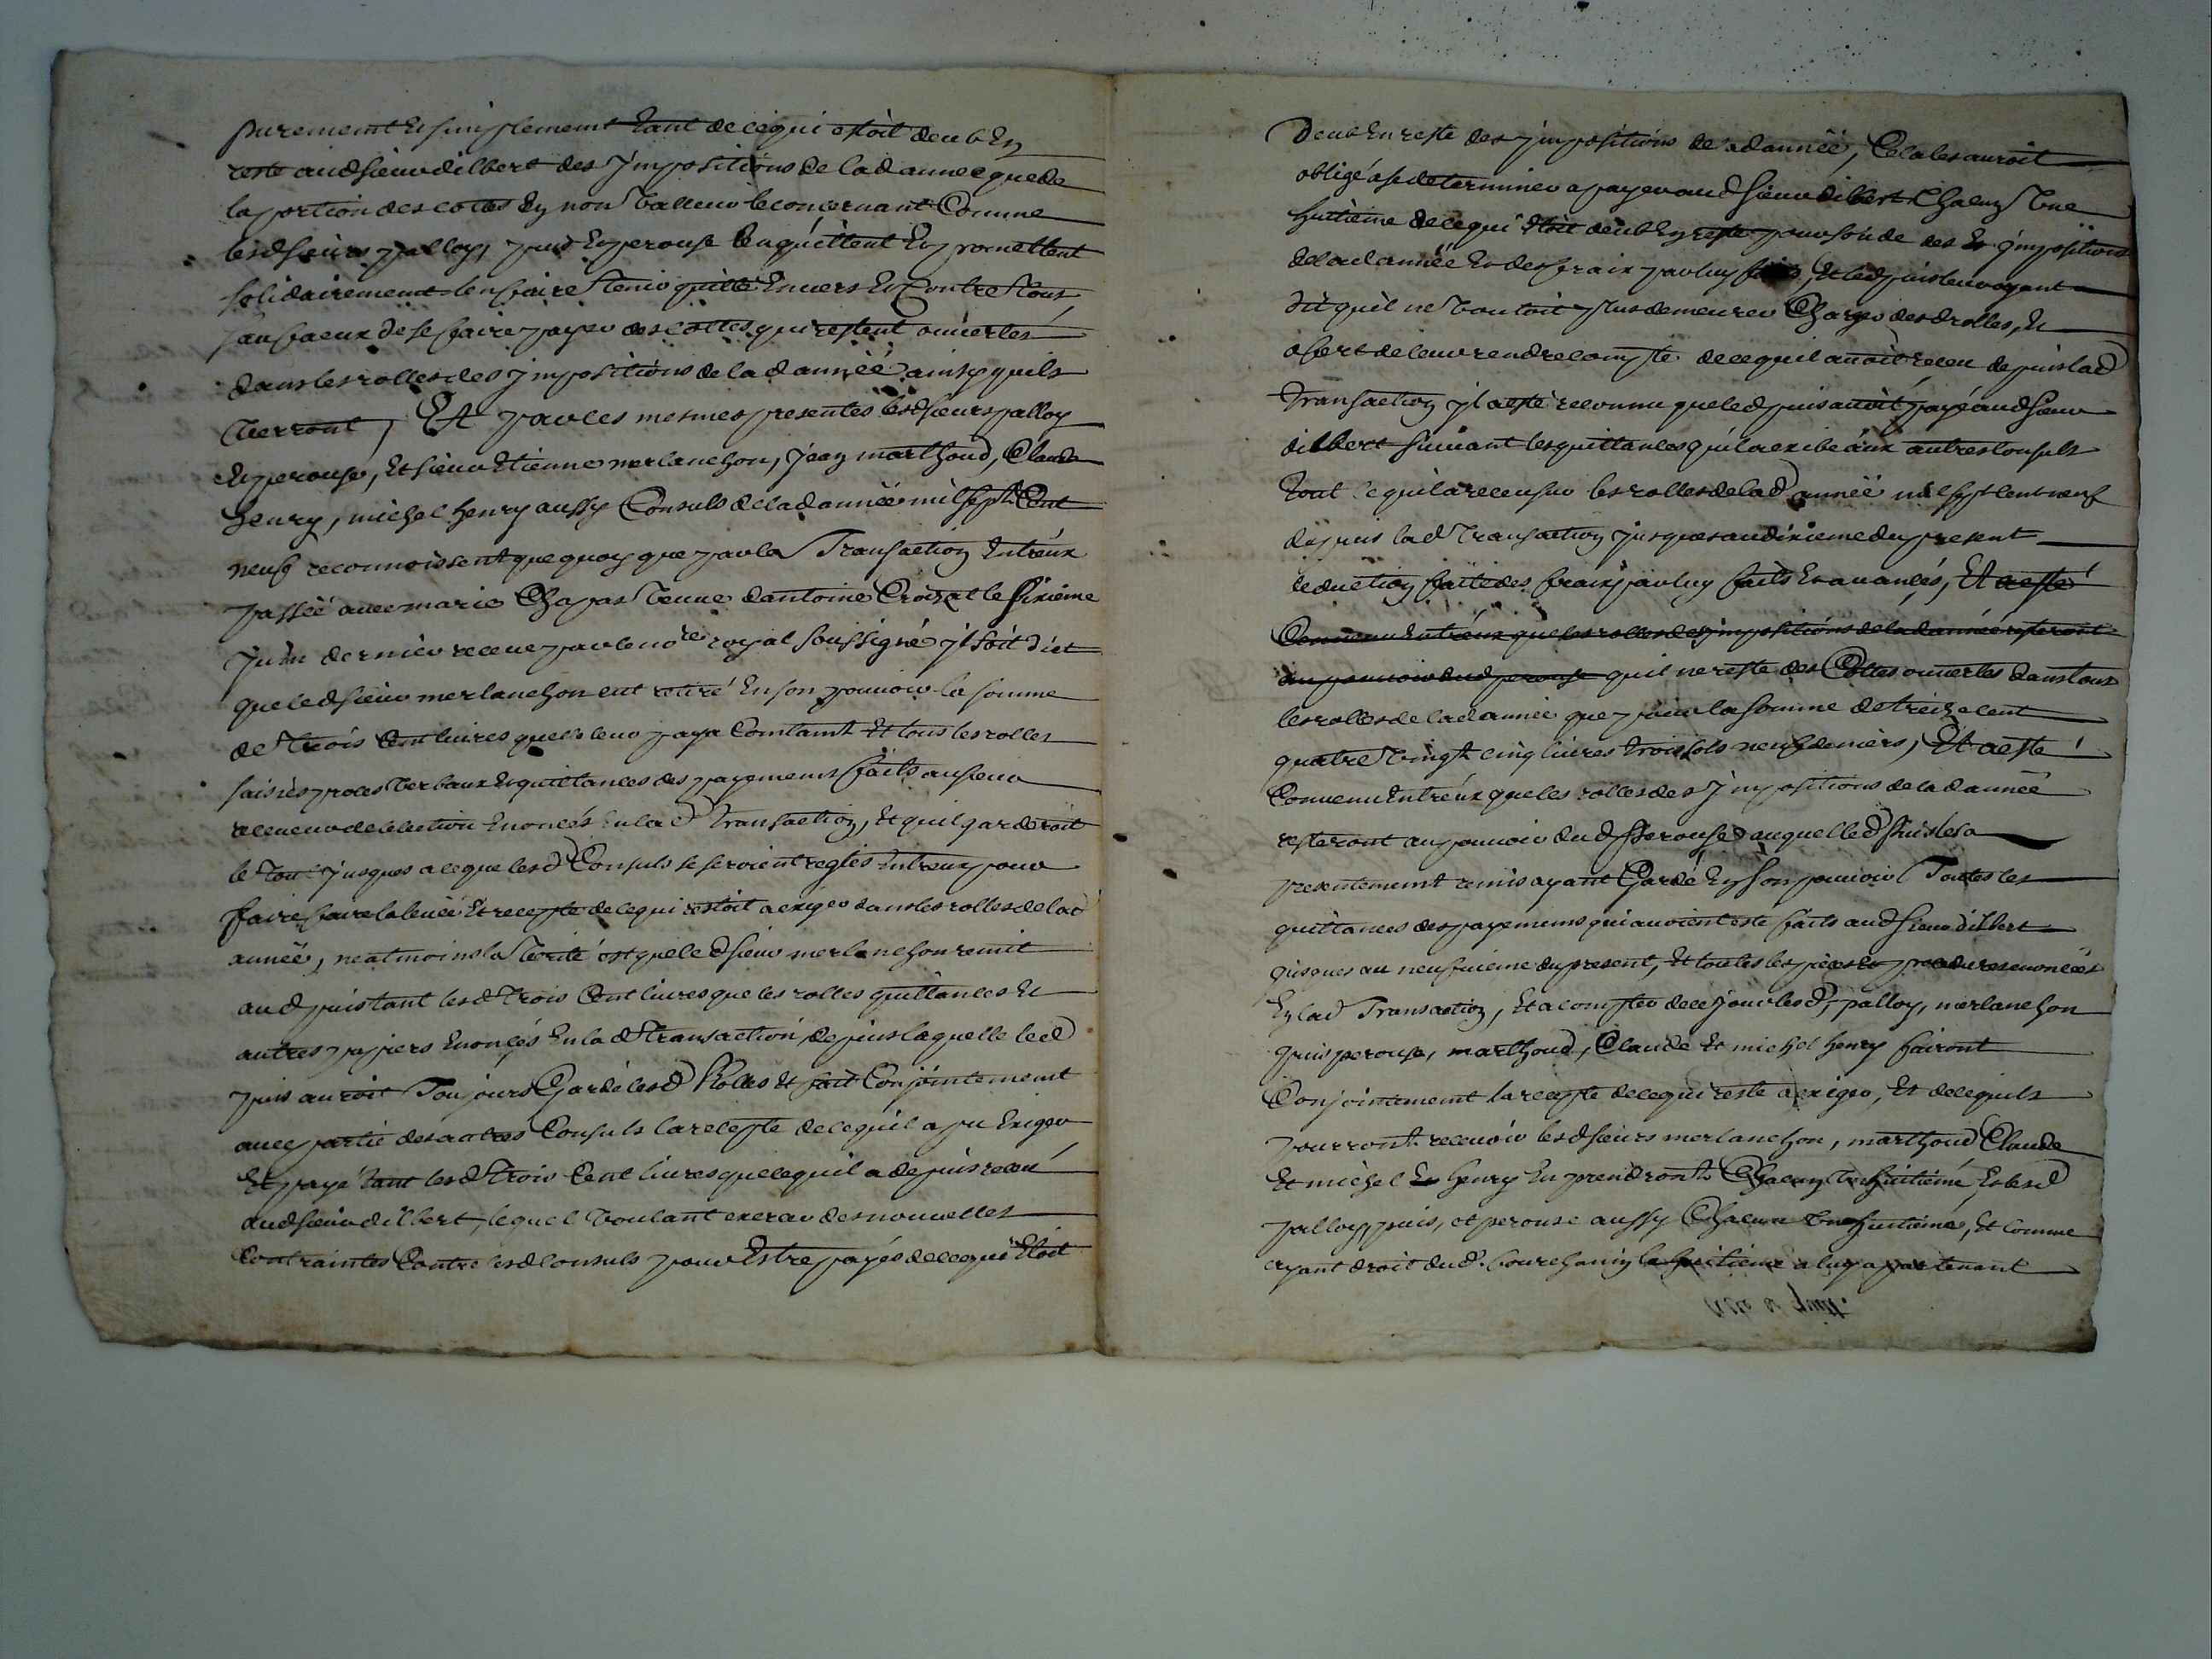 purement et simplement tant de ce qui estoit deub en
reste aud sieur dilbert des jmpositions de lad année que de
la portion des cottes en non valleur le concernant Comme
lesd sieurs palloy, puis et perouse len quittent et promettent
solidairement len faire tenir quitte envers et contre tous
sauf a eux de se faire payer des cottes qui restent ouvertes
dans les rolles des jmpositions de lad année ainsy quils
verront, Et par ces mesmes presentes lesd sieurs palloy
et perouse, et sieur Etienne merlanchon, jean marthoud, Claude
henry, michel henry aussy Consuls de lad année mil sept Cent
neuf reconnoissent que quoy que par la Transaction entreux
passée avec marie Chapas veuve dantoine Croizat le sixieme
juin dernier receue par le no.re royal soussigné jl soit dict
que led sieur merlanchon eut retiré en son pouvoir la somme
de trois Cent livres quel leur paya Comtant et tous les rolles
saisies proces verbaux et quittances des payements faits au sieur
receveur de lelection enoncés en lad transaction, et quil garderoit
le tout jusques a ce que lesd Consuls se seroient reglés entreux pour
faire faire la levée et recepte de ce qui restoit a exiger dans les rolles de lad
année, neatmoins la verité est que led sieur merlanchon remit
aud puis tant lesd trois Cent livres que les rolles quittances et
autres papiers enonçés en lad transaction depuis laquelle led
puis auroit Toujours Gardé lesd Rolles et fait Conjointement
avec partie des autres Consuls la recepte de ce quil a pu exiger
et payé tant lesd trois Cent livres que ce quil a depuis receu
aud sieur dilbert, lequel voulant exercer des nouvelles
Contraintes Contre lesd Consuls pour Estre payés de ce qui etoit
Deub en reste des jmpositions de lad année, Cela les auroit
obligé a se determiner a payer aud sieur dilbert Chacun vne
huitieme de ce qui etoit deub en reste pour solde des et jmpositions
de lad année et des fraix par luy faits, et led puis leur ayant
dit quil ne vouloit plus demeurer Chargé desd rolles, et
ofert de leur rendre compte de ce quil avoit receu depuis lad
transaction jl a esté reconnu que led puis avoit payé aud sieur
dilbert suivant les quittances quil a exibé aux autres Consuls
tout ce quil a receu sur les rolles de lad année mil sept cent neuf
depuis lad transaction jusques au dixieme du present
deduction faitte des fraix par luy faits et avancés, Et a esté
Convenu entréux que les rolles des jmpositions de lad année resteront
au pouvoir dud perouse quil ne reste des Cottes ouvertes dans tous
les rolles de lad année que pour la somme de treize cent
quatre vingt cinq livres trois sols neuf deniers, Et a esté
Convenu entréux que les rolles des jmpositions de lad année
resteront au pouvoir dud Perouse auquel led Puis les a
presentement remis ayant Gardé en son pouvoir Toutes les
quittances des payements qui avoient esté faits aud sieur dilbert
jusques au neufvieme du present, et toutes les pieces et procedures enoncées
en lad Transaction, et a compter de ce jour lesd, palloy, merlanchon
puis perouse, marthoud, Claude et michel henry fairont
Conjointement la recepte de ce qui reste a exiger, et de ce quils
pourront recevoir lesd sieurs merlanchon, marthoud Claude
et michel et henry en prendront Chacun vn huitiéme, et lesd
palloy, puis, et perouse aussy Chacun vne huitieme, et comme
ayant droit dud. la huitieme a luy apartenant